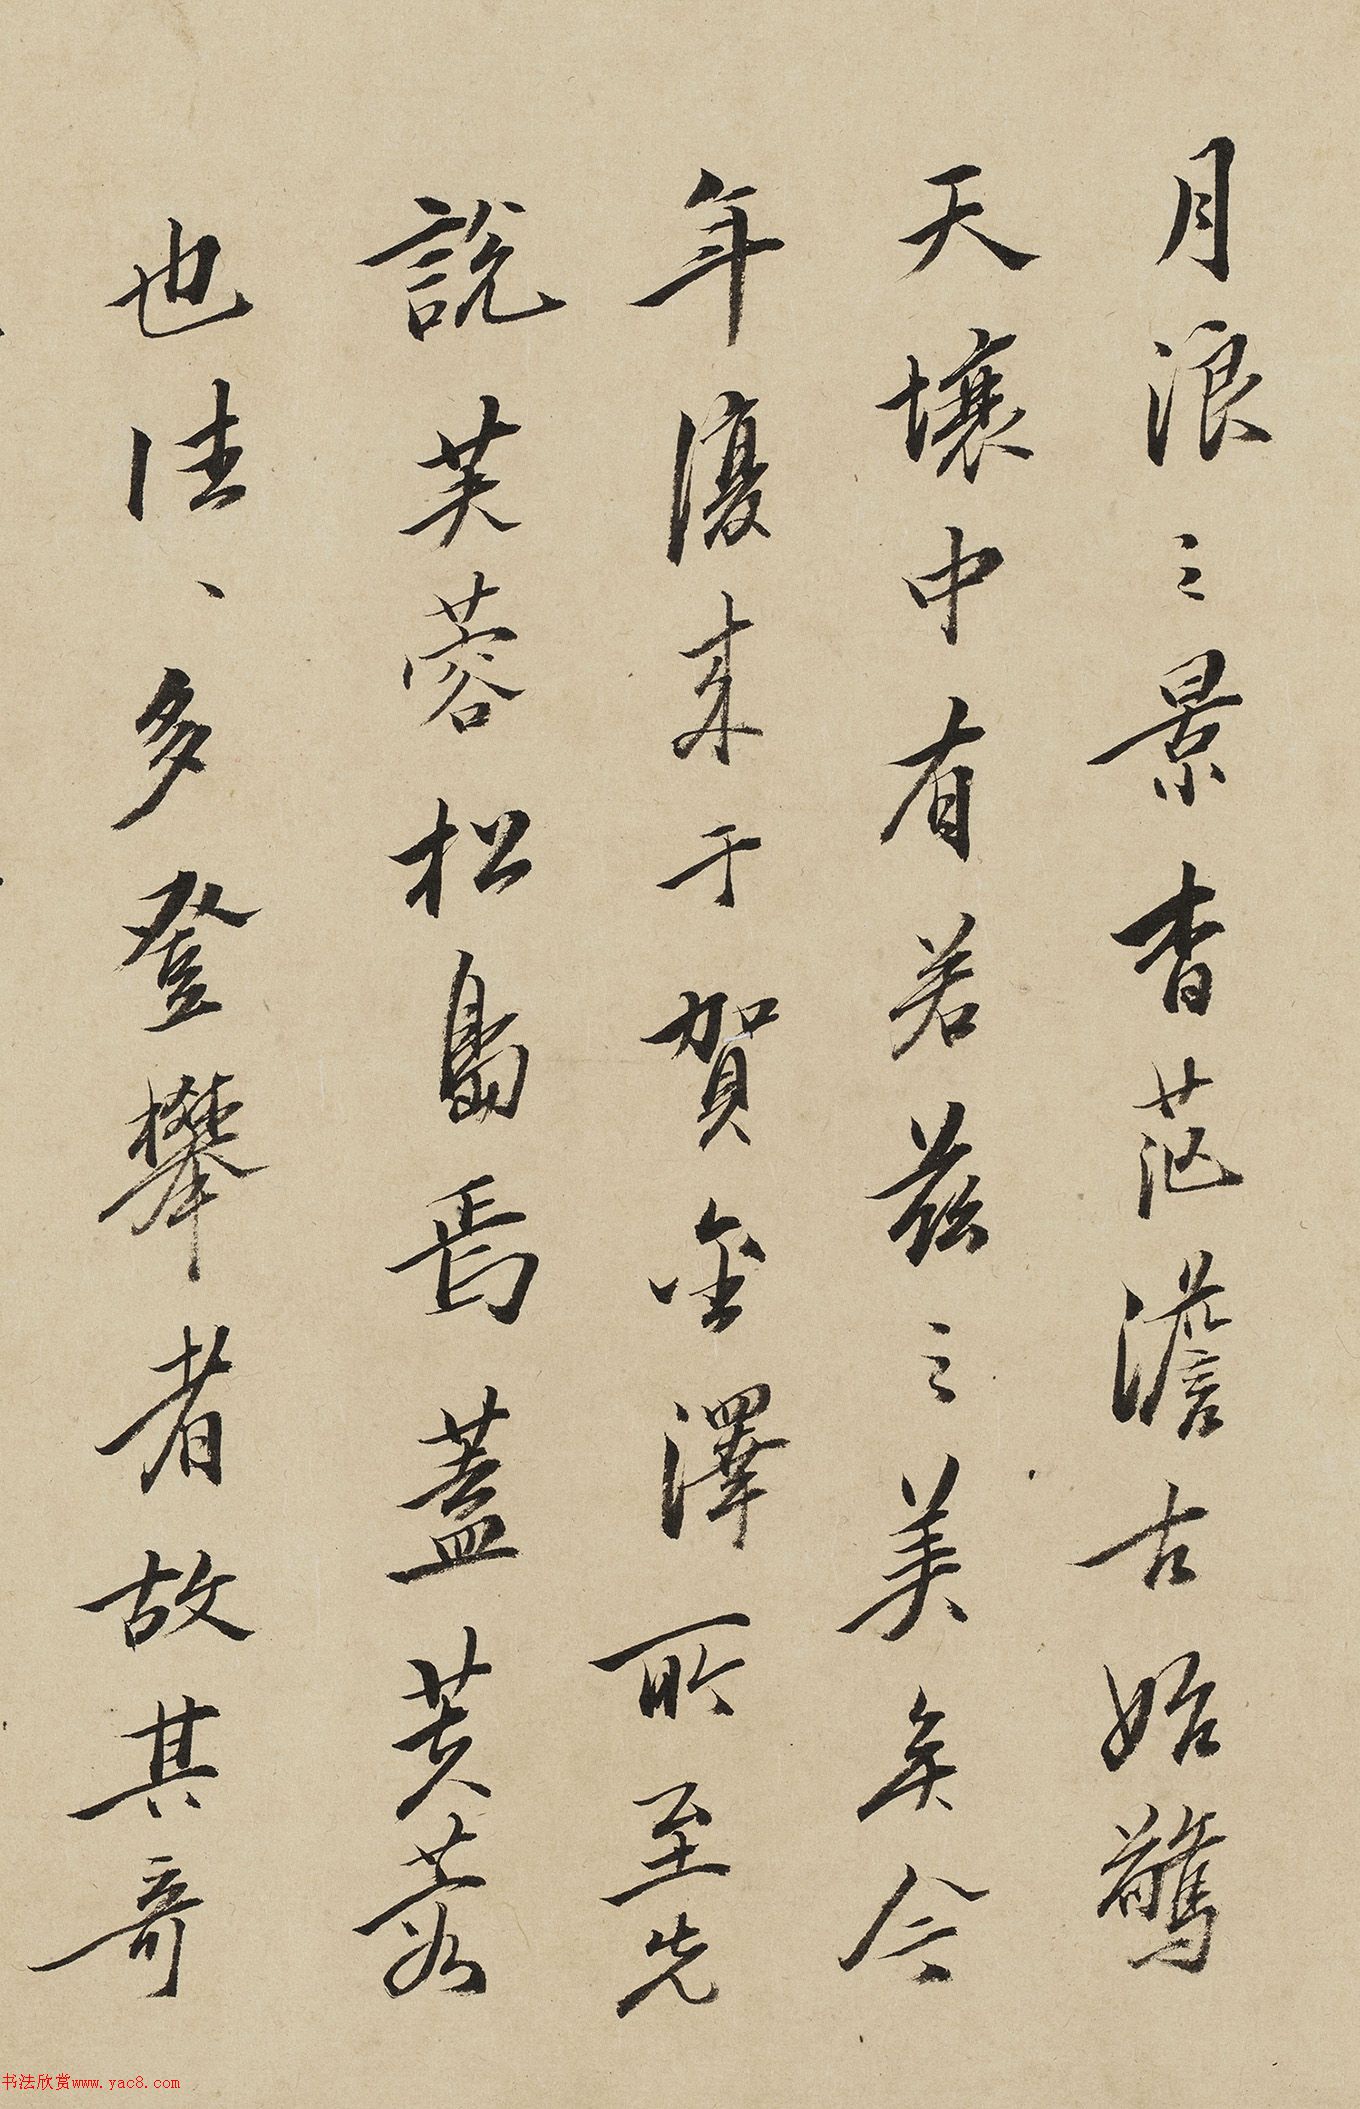 月浪之景杳茫澹古始驚
天壤中有若茲之美矣今
年復来于賀金澤所至先
說芙蓉松島焉蓋芙蓉
也徃、多登攀者故其奇
书法欣赏www.yac8.com